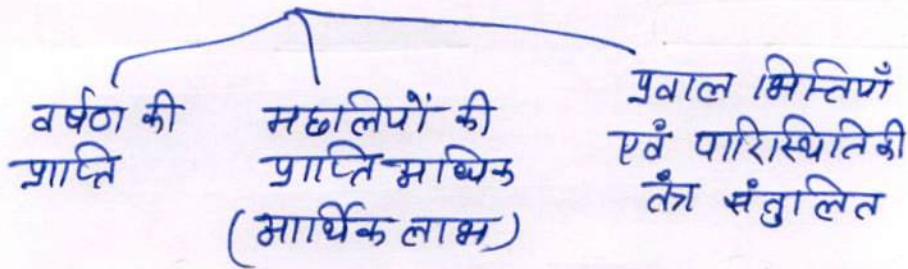 वर्षण की
प्राप्ति
मछलियों की
प्राप्ति अधिक
(आर्थिक लाभ)
प्रवाल भित्तियाँ
एवं पारिस्थितिकी
तंत्र संतुलित